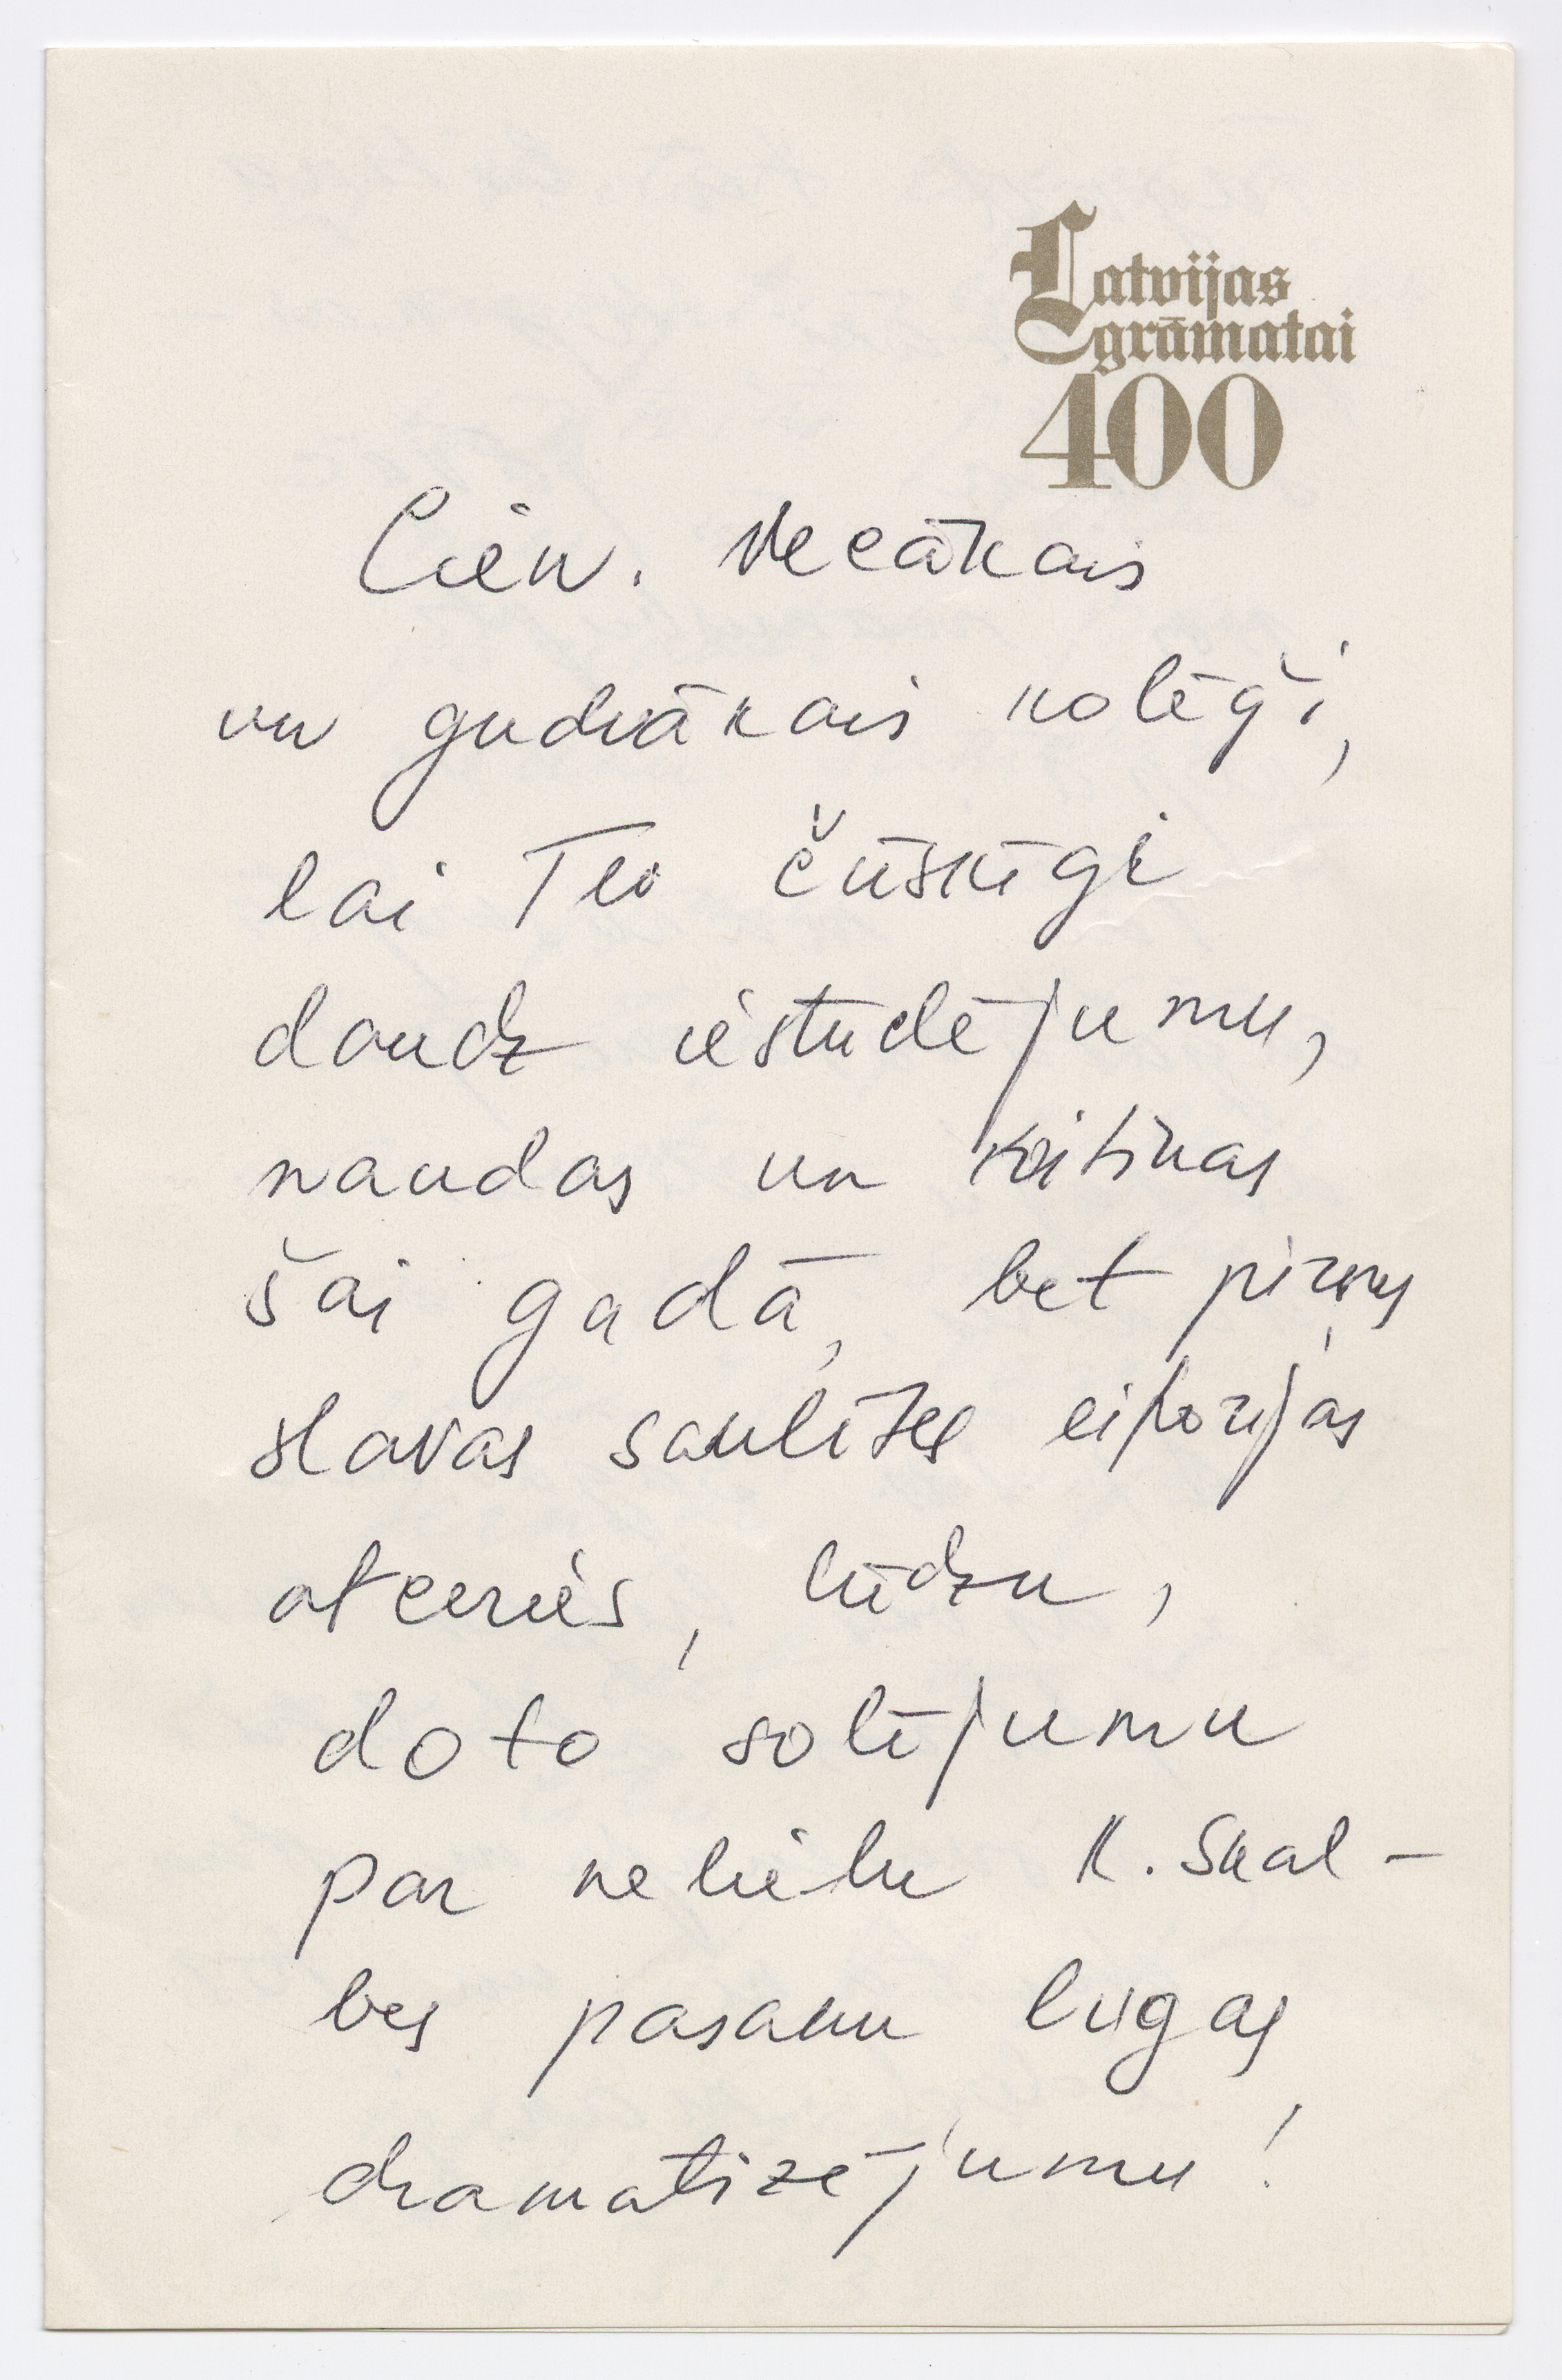 Latvijas
grāmatai
400
Cien. Vecākais
un gudrākais kolēģi,
lai Tev čūskīgi
daudz iestudējumu,
naudas un kritikas
šai gadā, bet pirms
slavas saulītes eiforijas
atceries, lūdzu,
doto solījumu
par nelielu K. Skal-
bes pasaku lugas
dramatizējumu!